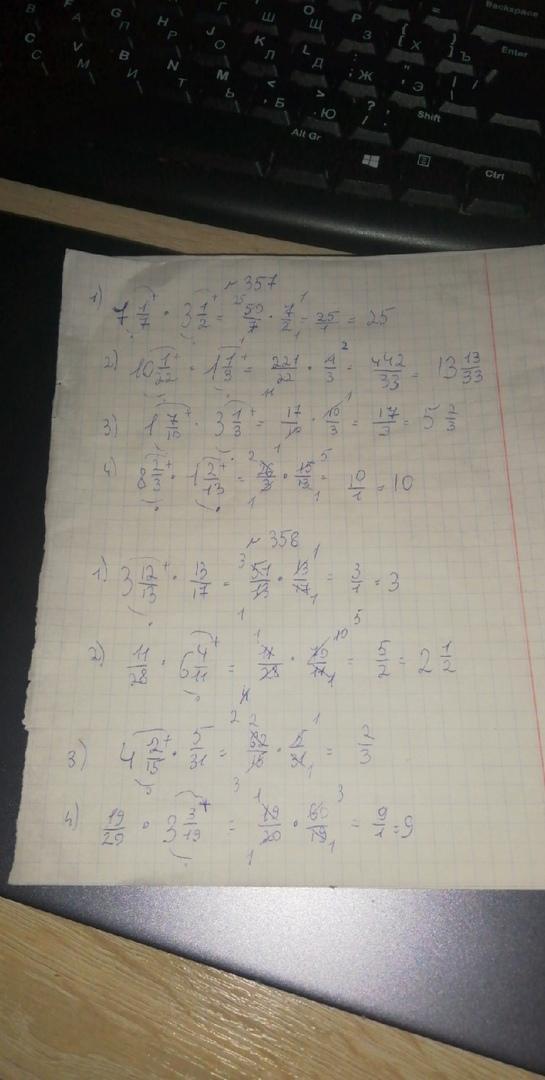 Backspace
F A
G П
H Р
J О
K Л
L Д
: ; Ж
" ' Э
Enter
C С
V М
B И
N Т
M Ь
< , Б
> . Ю
? /
Shift
Alt Gr
Ctrl
№ 357
1) 7 1/7 · 3 1/2 = 50/7 · 7/2 = 25/1 = 25
2) 10 1/22 · 1 1/3 = 221/22 · 4/3 = 442/33 = 13 13/33
3) 1 7/10 · 3 1/3 = 17/10 · 10/3 = 17/3 = 5 2/3
4) 8 2/3 · 1 2/13 = 26/3 · 15/13 = 10/1 = 10
№ 358
1) 3 12/13 · 13/17 = 51/13 · 13/17 = 3/1 = 3
2) 11/28 · 6 4/11 = 11/28 · 70/11 = 5/2 = 2 1/2
3) 4 2/15 · 5/31 = 62/15 · 5/31 = 2/3
4) 19/20 · 3 3/19 = 19/20 · 60/19 = 9/1 = 9